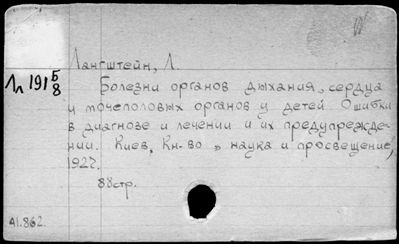 Лангштейн, Л.
Лп 191 5/8
Болезни органов дыхания, сердца
и мочеполовых органов у детей. Ошибки
в диагнозе и лечении и их предупрежде-
нии. Киев, Кн-во „наука и просвещение",
1927.
88стр.
А1.862.